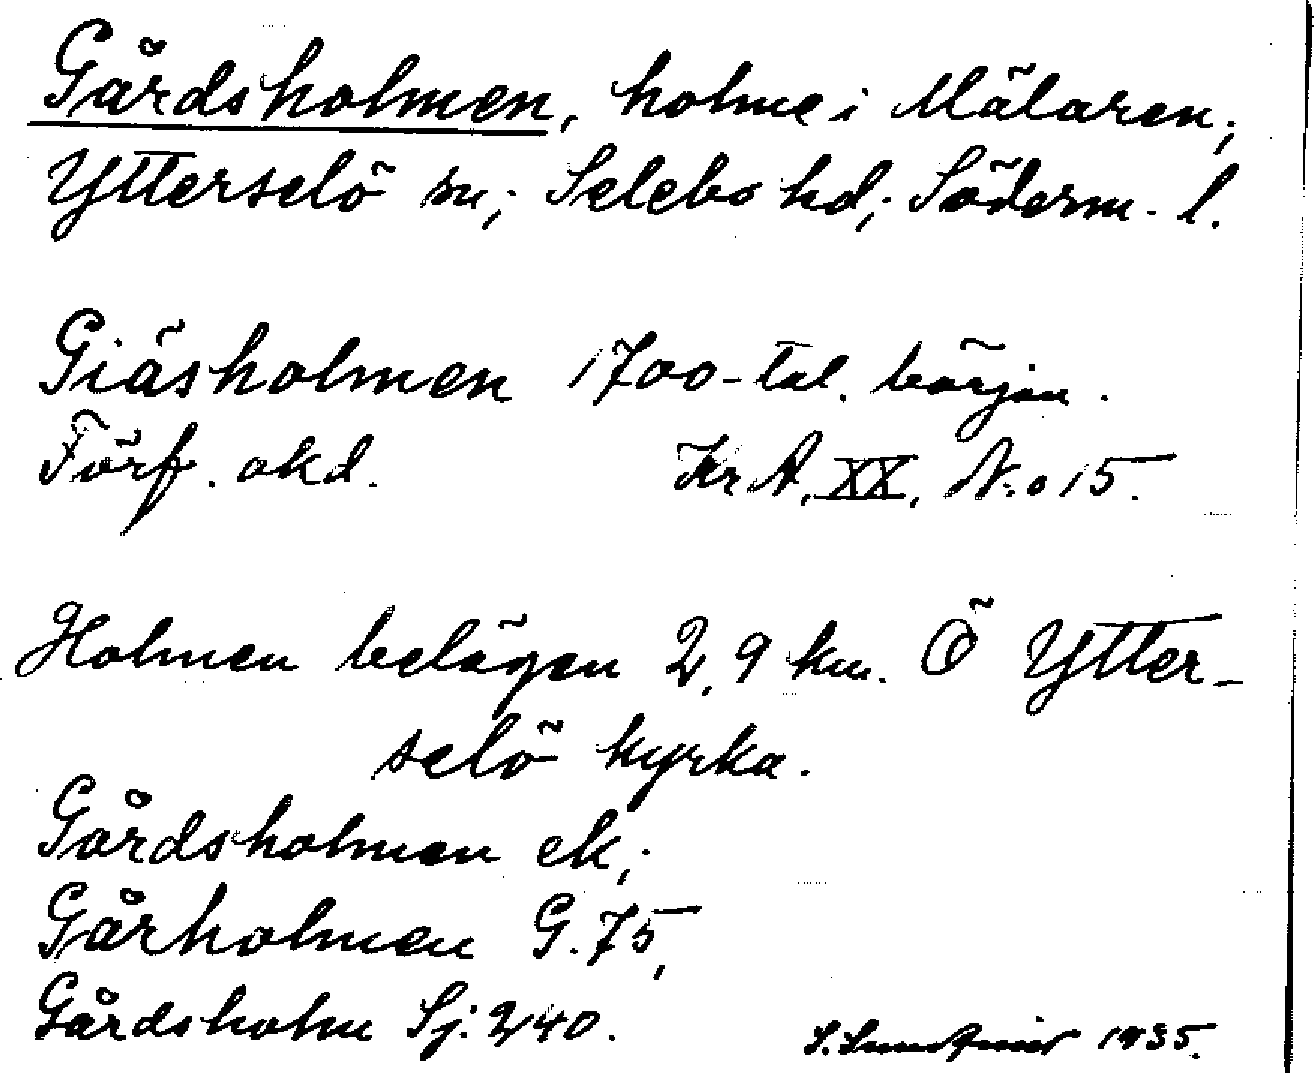 Gårdsholmen, holme i Mälaren;
Ytterselö sn; Selebo hd; Söderm. l.
Giäsholmen 1700-tal. början.
Förf. okd. Kr A, XX, N:o 15.
Holmen belägen 2,9 km. Ö Ytter-
selö kyrka.
Gårdsholmen ek;
Gårholmen G. 75,
Gårdsholm Sj. 240.
S. 1935.